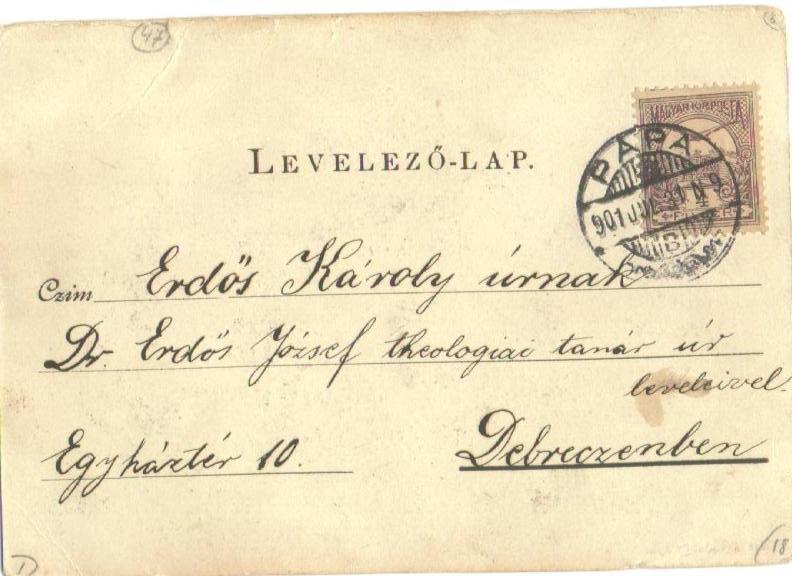 47
6
MAGYAR KIR. POSTA
PÁPA
LEVELEZŐ-LAP.
901 JUL. 31 N 9
Czim Erdős Károly úrnak
Dr. Erdős József theologiai tanár úr
leveleivel.
Egyháztér 10.
Debreczenben
1
18